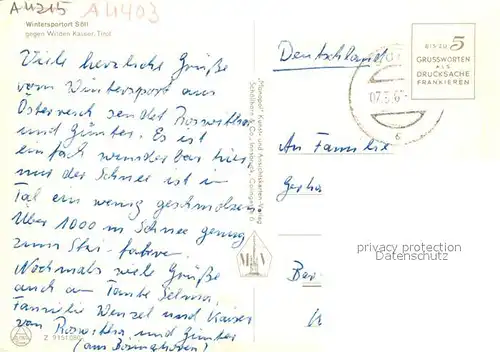 A 4215 A 4403
Wintersportort Söll
gegen Wilden Kaiser, Tirol
Viele herzliche Grüße
vom Wintersport aus
Österreich sendet Roswitha
und Günter. Es ist
einfach wunderbar hier,
nur der Schnee ist im
Tal ein wenig geschmolzen.
Über 1000 m Schnee genug
zum Ski-fahren.
Nochmals viele Grüße
auch an Tante Selma,
Familie Wenzel und Kaiser
von Roswitha und Günter
Z 9151
Deutschland
BIS ZU 5
GRUSSWORTEN
ALS
DRUCKSACHE
FRANKIEREN
An Familie
Gerha
privacy protection
Datenschutz